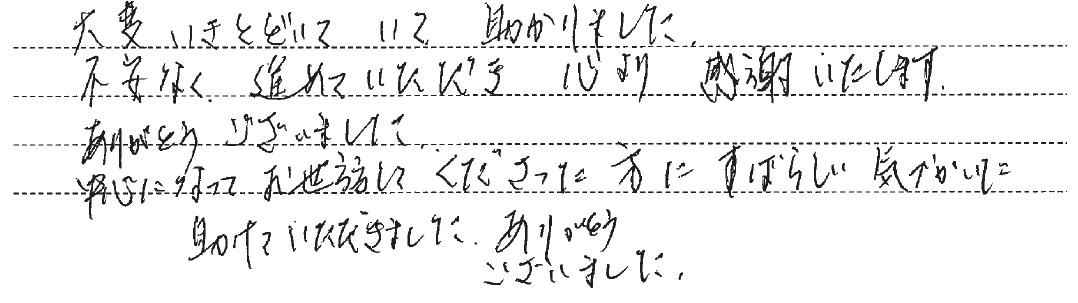 大変いきとどいていて助かりました.
不安なく進めていただき心より感謝いたします.
ありがとうございました.
中心になってお世話してくださった方にすばらしい気づかいに
助けていただきました. ありがとう
ございました.